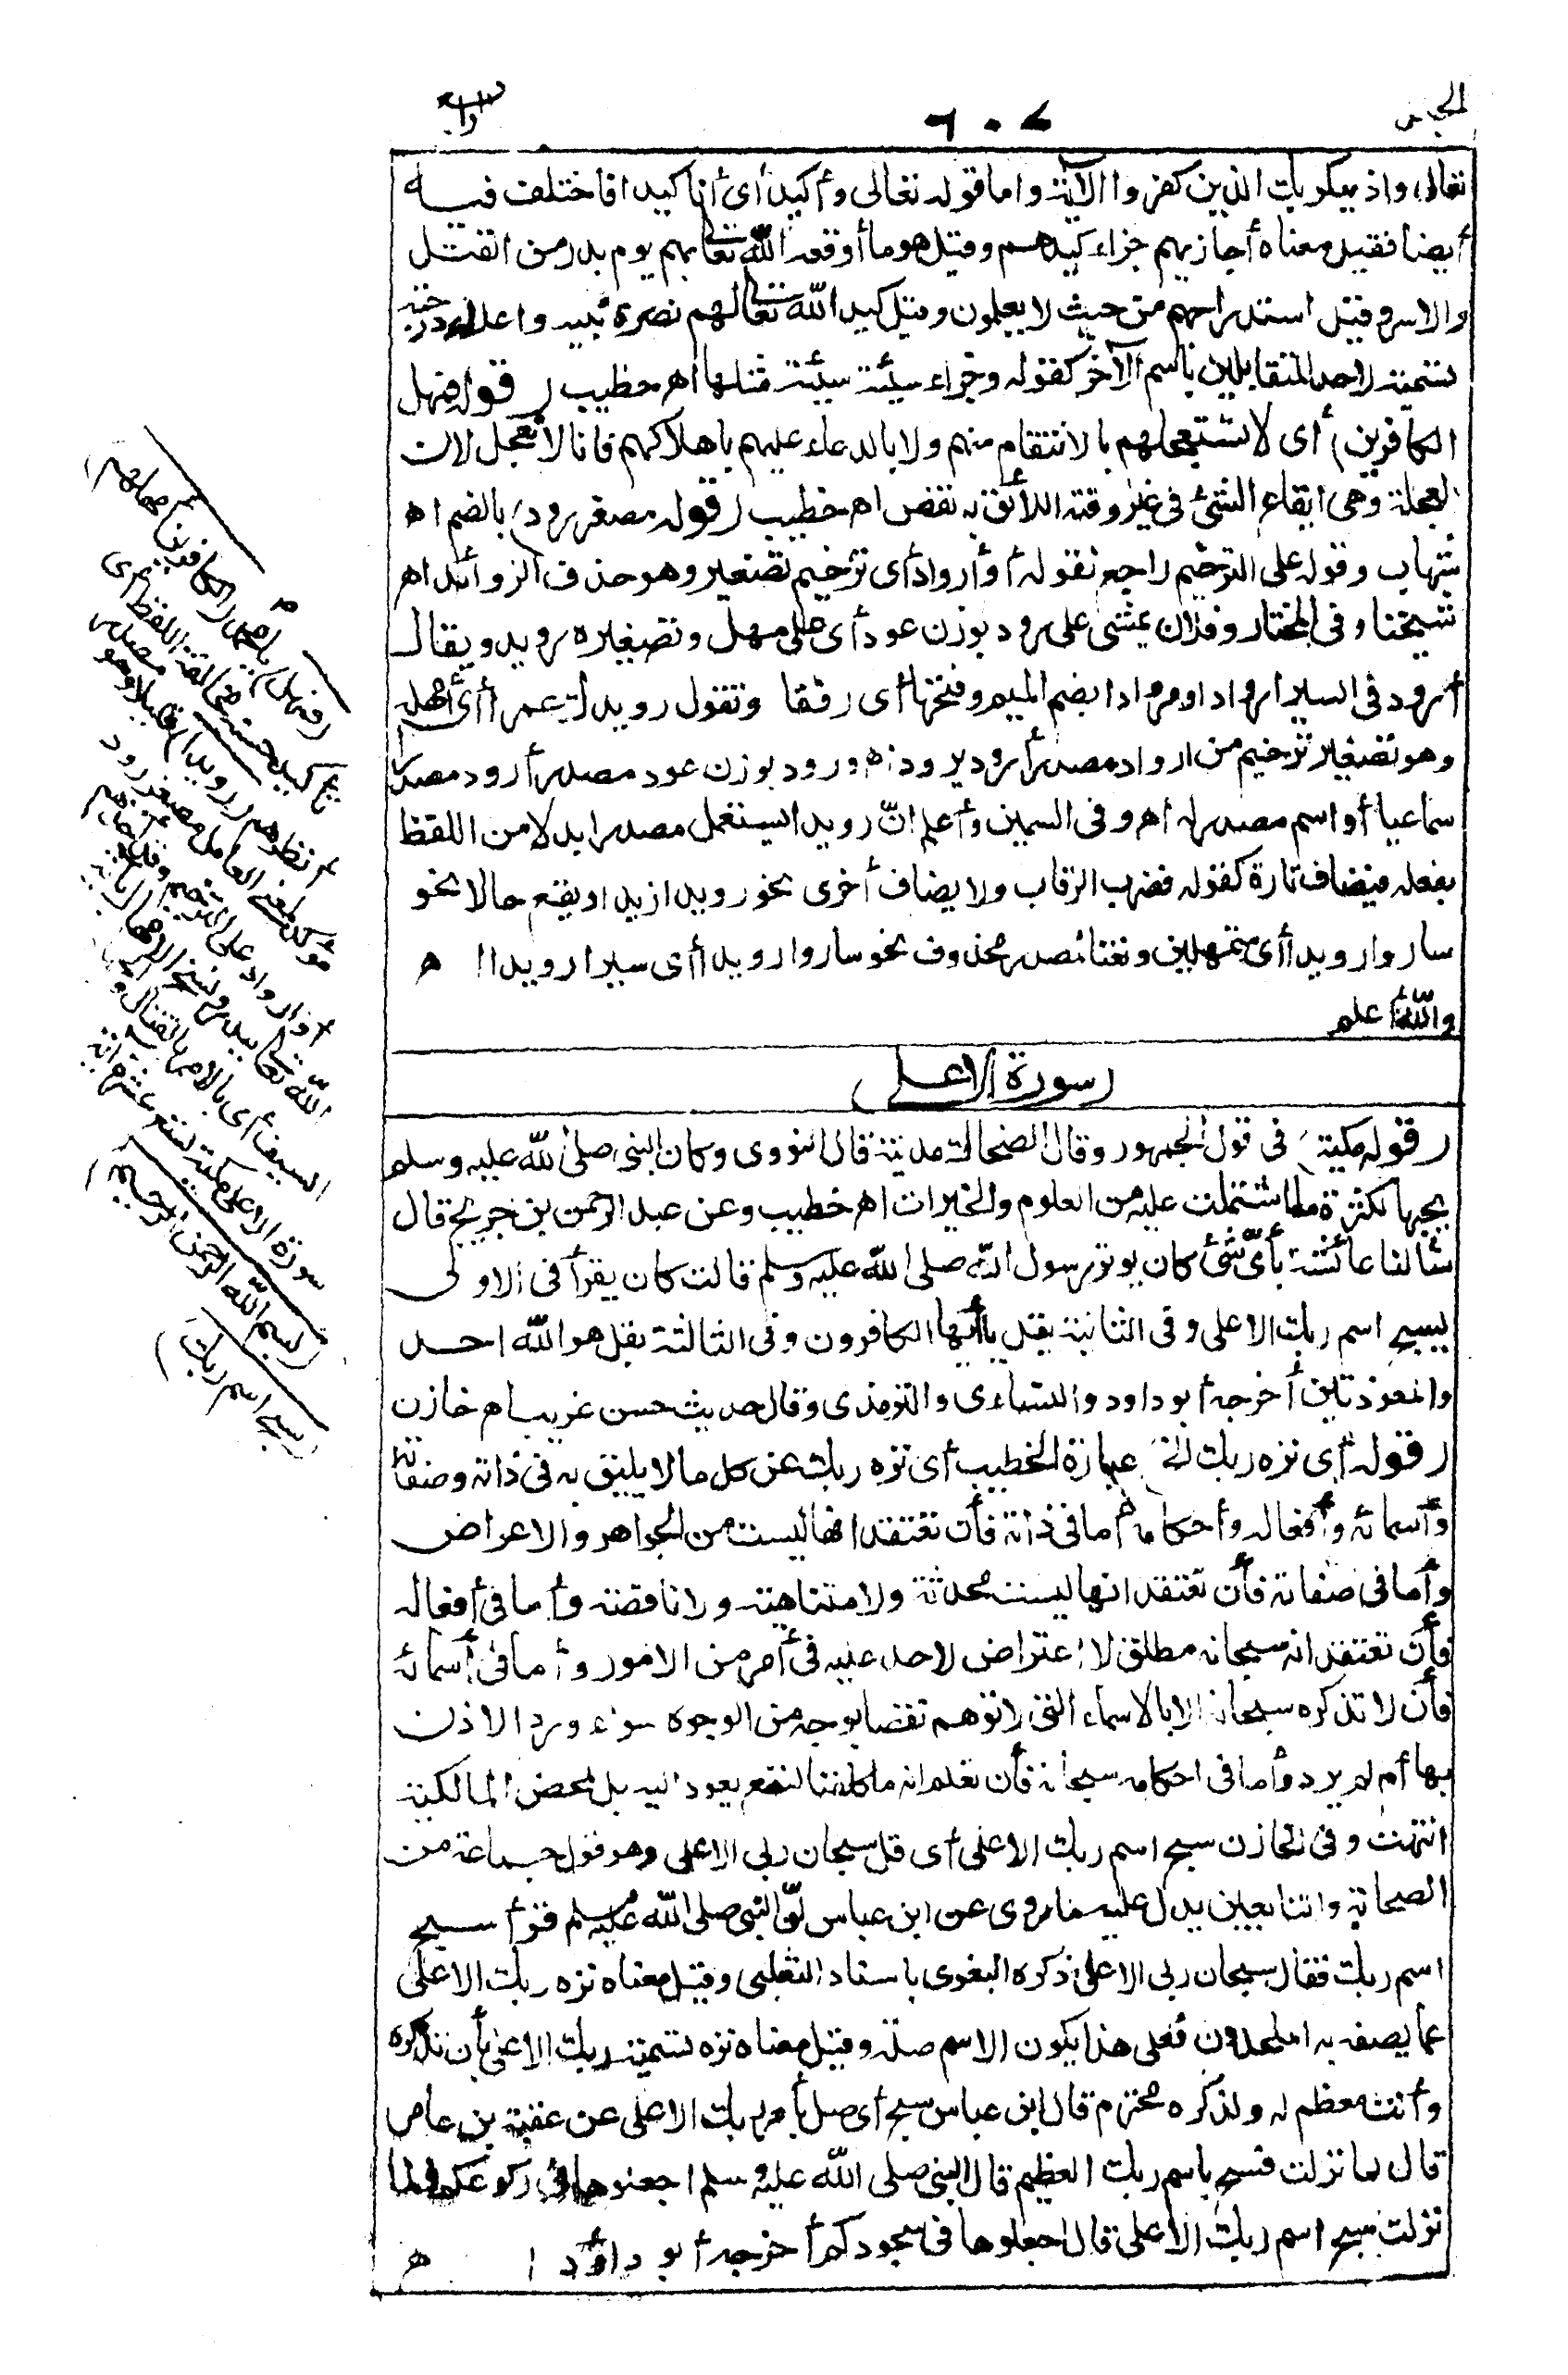 الجمل
٦٠٧
رابع
تعالى واذ يمكر بك الذين كفروا الآية واما قوله تعالى وأكيد أى أنا كيدا فاختلف فيه
أيضا فقيل معناه أجازيهم جزاء كيدهم وقيل هو ما أوقعه الله تعالى بهم يوم بدر من القتل
والاسر وقيل استدراجهم من حيث لا يعلمون وقيل كيد الله تعالى لهم نصرة نبيه واعلاء درجته
تسمية لاحد المتقابلين باسم الآخر كقوله وجزاء سيئة سيئة مثلها اه خطيب (قوله فمهل
الكافرين) أى لا تستعجلهم بالانتقام منهم ولا بالدعاء عليهم باهلاكهم فانا لا نعجل لان
العجلة وهى ايقاع الشئ فى غير وقته اللائق به نقص اه خطيب (قوله مصغر رود) بالضم اه
شهاب وقوله على الترخيم راجع لقوله أو أرواد أى ترخيم تصغير وهو حذف الزوائد اه
شيخنا وفى المختار وفلان يمشى على رود بوزن عود أى على مهل وتصغيره رويد ويقال
أرود فى السير اروادا ومرودا بضم الميم وفتحها أى رفقا وتقول رويدك عمرا أى أمهله
وهو تصغير ترخيم من ارواد مصدر أرود يرود اه ورود بوزن عود مصدر أرود مصدرا
سماعيا أو اسم مصدر له اه وفى السمين وأعلم انّ رويدا يستعمل مصدرا بدلا من اللفظ
بفعله فيضاف تارة كقوله فضرب الرقاب ولا يضاف أخرى نحو رويدا زيدا ويقع حالا نحو
ساروا رويدا أى متمهلين ونعتا لمصدر محذوف نحو ساروا رويدا أى سيرا رويدا ا ه
والله أعلم
(سورة الاعلى)
(قوله مكية) فى قول الجمهور وقال الضحاك مدنية قال النووى وكان النبى صلى الله عليه وسلم
يحبها لكثرة ما اشتملت عليه من العلوم والخيرات اه خطيب وعن عبد الرحمن بن جريج قال
سألنا عائشة بأىّ شئ كان يوتر رسول الله صلى الله عليه وسلم قالت كان يقرأ فى الاولى
بسبح اسم ربك الاعلى وفى الثانية بقل يا أيها الكافرون وفى الثالثة بقل هو الله احد
والمعوذتين أخرجه أبو داود والنساءى والترمذى وقال حديث حسن غريب اه خازن
(قوله أى نزه ربك الخ) عبارة الخطيب أى نزه ربك عن كل ما لا يليق به فى ذاته وصفاته
وأسمائه وأفعاله وأحكامه أما فى ذاته فأن تعتقد انها ليست من الجواهر والاعراض
وأما فى صفاته فأن تعتقد انها ليست محدثة ولا متناهية ولا ناقصة وأما فى أفعاله
فأن تعتقد انه سبحانه مطلق لا اعتراض لاحد عليه فى أمر من الامور وأما فى أسمائه
فأن لا تذكره سبحانه الا بالاسماء التى لا توهم نقصا بوجه من الوجوه سواء ورد الاذن
بها أم لم يرد وأما فى احكامه سبحانه فأن تعلم انه ما كلفنا لنفع يعود اليه بل لمحض المالكية
انتهت وفى الخازن سبح اسم ربك الاعلى أى قل سبحان ربى الاعلى وهو قول جماعة من
الصحابة والتابعين يدل عليه ما روى عن ابن عباس انّ النبى صلى الله عليه وسلم قرأ سبح
اسم ربك فقال سبحان ربى الاعلى ذكره البغوى باسناد الثعلبى وقيل معناه نزه ربك الاعلى
عما يصفه به الملحدون فعلى هذا يكون الاسم صلة وقيل معناه نزه تسمية ربك الاعلى بأن تذكره
وأنت معظم له ولذكره محترم قال ابن عباس سبح أى صل بأمر ربك الاعلى عن عقبة بن عامر
قال لما نزلت فسبح باسم ربك العظيم قال النبى صلى الله عليه وسلم اجعلوها فى ركوعكم ولما
نزلت سبح اسم ربك الاعلى قال اجعلوها فى سجودكم أخرجه أبو داؤد ا ه
(فمهل) يا محمد (الكافرين أمهلهم)
تأكيد حسنه مخالفة اللفظ أى
أنظرهم (رويدا) قليلا وهو مصدر
مؤكد لمعنى العامل مصغر رود
أو ارواد على الترخيم وقد أخذهم
الله تعالى ببدر ونسخ الامهال بآية
السيف أى بالامر بالقتال
سورة الاعلى مكية تسع عشرة آية
(بسم الله الرحمن الرحيم)
(سبح اسم ربك)